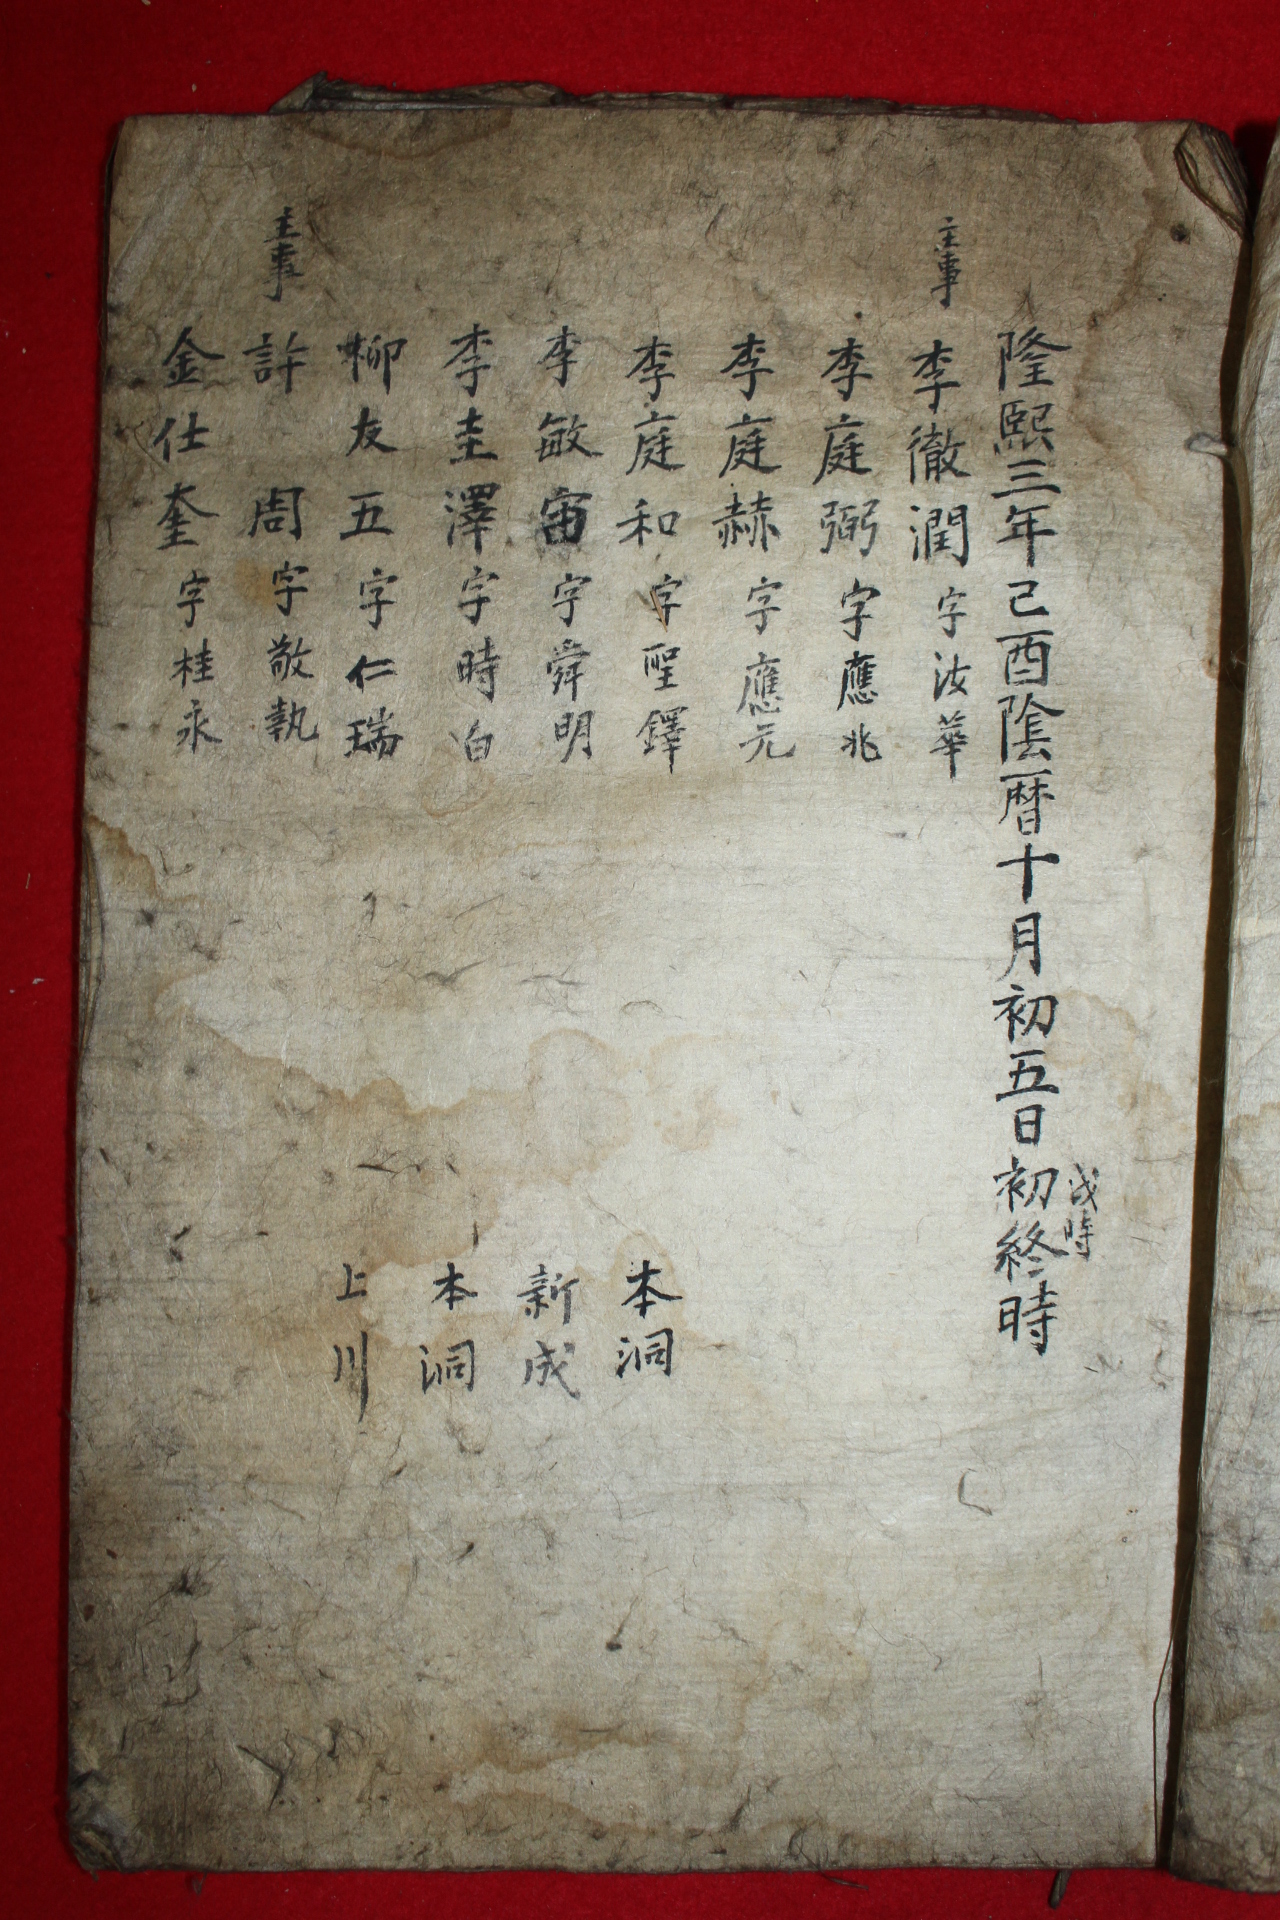 隆熙三年己酉陰曆十月初五日初終時
戌時
主事
李徹潤 字汝華
李庭弼 字應兆
李庭赫 字應元
李庭和 字聖鐸 本洞
李敏宙 字舜明 新成
李圭澤 字時白 本洞
柳友五 字仁瑞 上川
主事
許 周 字敬執
金仕奎 字桂永